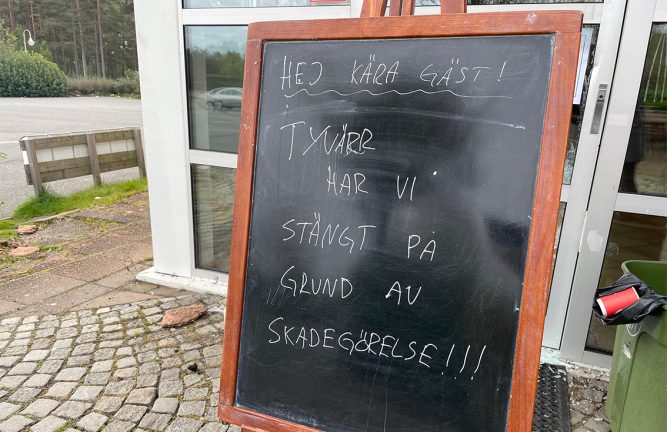 HEJ KÄRA GÄST!
TYVÄRR
HAR VI
STÄNGT PÅ
GRUND AV
SKADEGÖRELSE!!!